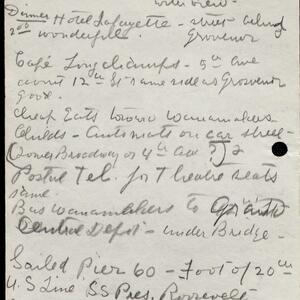 with view -
Dinner Hotel Lafayette - street behind
2.00 wonderful. Grosvenor
Café Longchamps - 5th Ave
about 12th St same side as Grosvenor
Good.
Cheap Eats toward Wanamakers
Childs - Automats on car street -
(Lower Broadway or 4th Ave?)
Postal Tel. for Theatre seats
same.
Bus Wanamakers to Grand
Central Depot - under Bridge -
Sailed Pier 60 - Foot of 20th
U.S Line SS Pres. Roosevelt